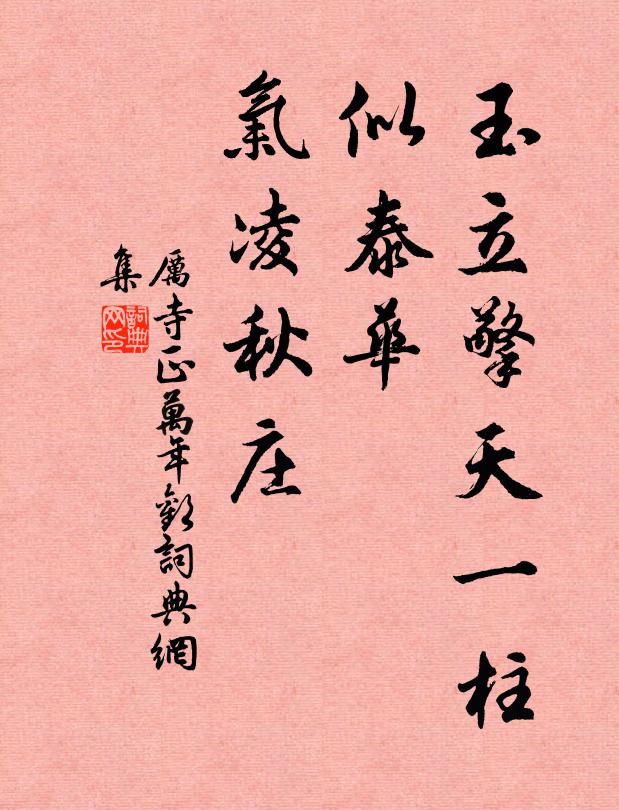 玉立擎天一柱
似泰華
氣凌秋庄
厲寺正萬年歡詞典網
集
詞典网印